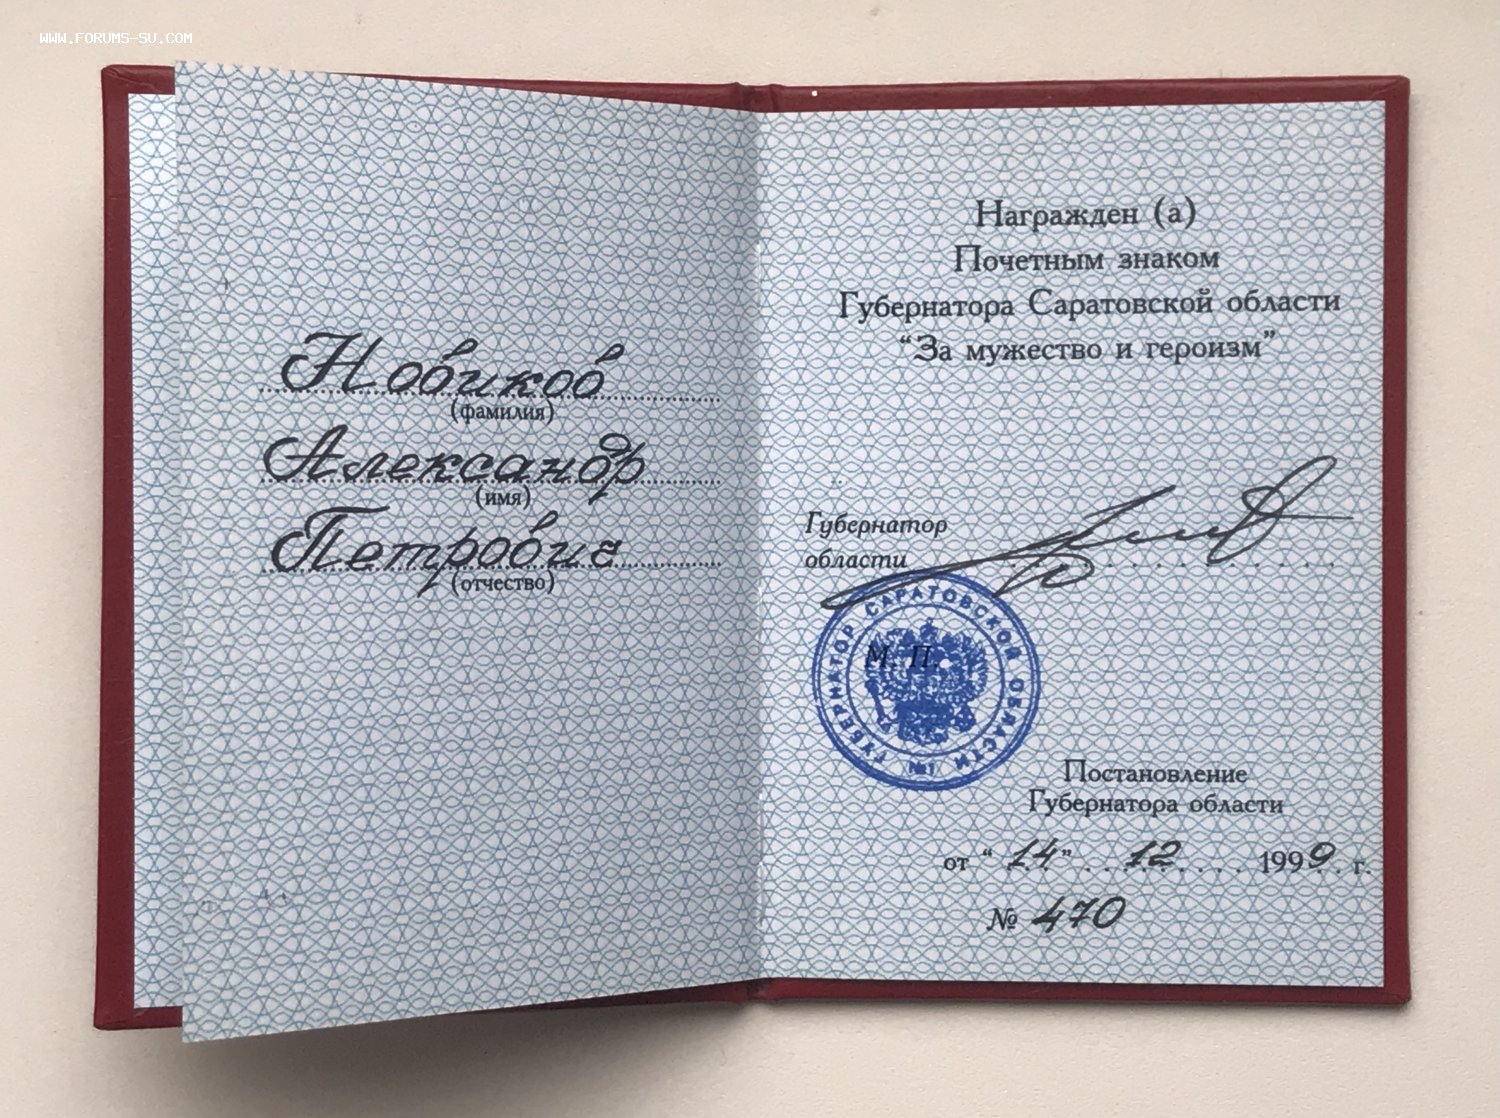 WWW.FORUMS-SU.COM
Новиков
(фамилия)
Александр
(имя)
Петрович
(отчество)
Награжден (а)
Почетным знаком
Губернатора Саратовской области
“За мужество и героизм”
Губернатор
области
М. П.
ГУБЕРНАТОР САРАТОВСКОЙ ОБЛАСТИ
№1
Постановление
Губернатора области
от “14” 12 1999 г.
№ 470